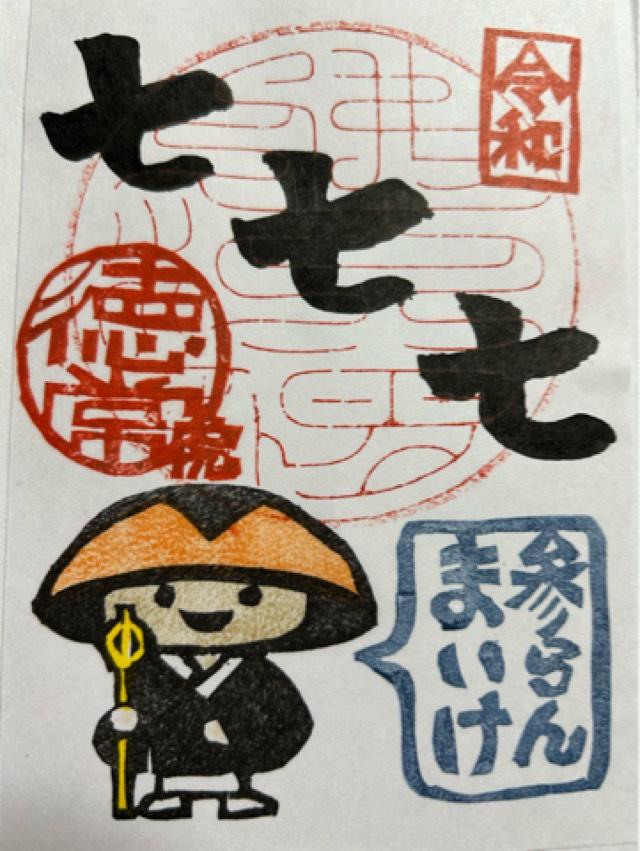 令和
七
七
七
徳崇
参らん
まいけ